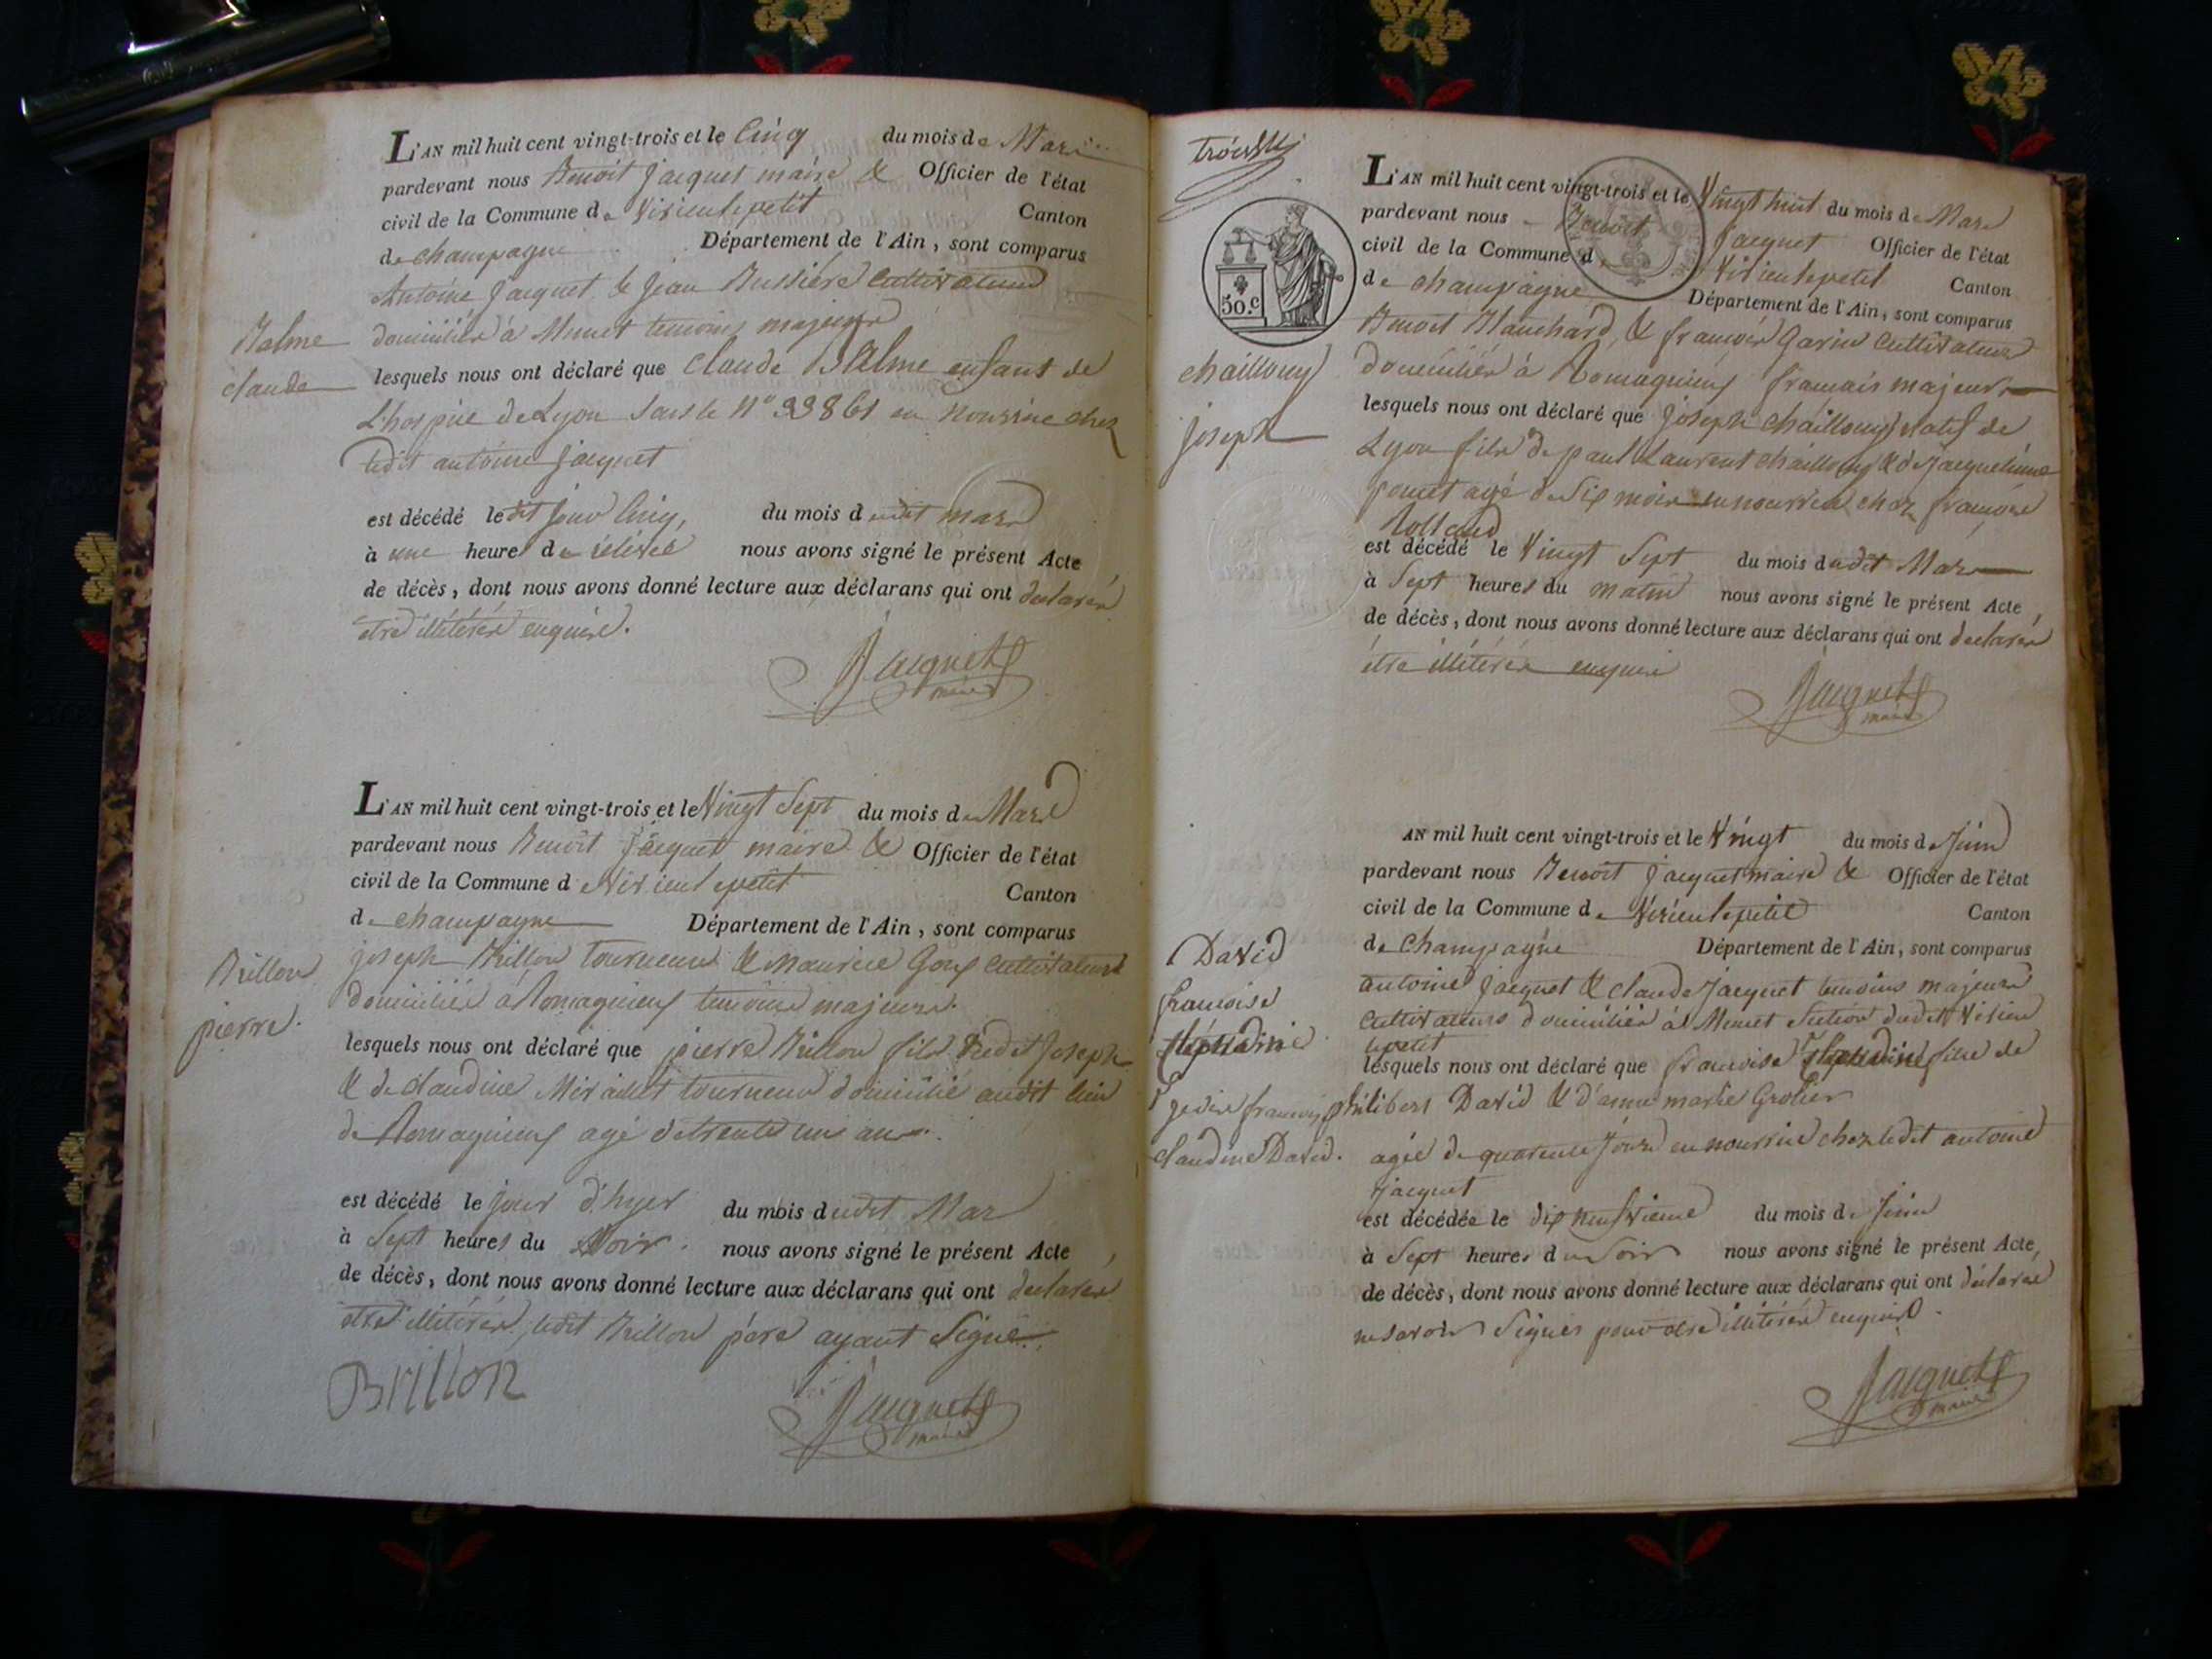 L'AN mil huit cent vingt-trois et le Cinq du mois de Mars
pardevant nous Benoit Jacquet maire & Officier de l'état
civil de la Commune de Virieulepetit Canton
de champagne Département de l'Ain, sont comparus
Antoine Jacquet & Jean Bussiere Cultivateurs
domiciliés à Munet temoins majeurs
Balme
claude
lesquels nous ont déclaré que Claude Balme enfant de
L'hospice de Lyon sous le N° en nourrice chez
ledit antoine jacquet
est décédé ledit jour Cinq, du mois dudit mars
à une heure de relevée nous avons signé le présent Acte
de décès, dont nous avons donné lecture aux déclarans qui ont declarés
etre illitérés enquis.
Jacquet
maire
L'AN mil huit cent vingt-trois et le Vingt Sept du mois de Mars
pardevant nous Benoit Jacquet maire & Officier de l'état
civil de la Commune de Virieulepetit Canton
de champagne Département de l'Ain, sont comparus
Brillon
pierre.
joseph Brillon tourneur & Maurice Goux Cultivateurs
domiciliés à Romagnieux temoins majeurs.
lesquels nous ont déclaré que pierre Brillon fils dudit Joseph
& de claudine tourneur domicilié audit lieu
de Romagnieux agé de trente un ans.
est décédé le jour d'hyer du mois dudit Mars
à Sept heures du Soir. nous avons signé le présent Acte,
de décès, dont nous avons donné lecture aux déclarans qui ont declarés
etre illitérés, ledit Brillon père ayant Signé.
Brillon
Jacquet
maire
L'AN mil huit cent vingt-trois et le Vingt huit du mois de Mars
pardevant nous Benoit Jacquet Officier de l'état
civil de la Commune de Virieulepetit Canton
de champagne Département de l'Ain, sont comparus
50.c
Benoit Blanchard, & françois Garin Cultivateurs
domiciliés à Romagnieux français majeurs
chaillouy
joseph
lesquels nous ont déclaré que joseph chaillouy natif de
Lyon fils de paul Laurent chaillouy & de jacquelinne
pomet agé de six mois en nourrice chez françois
Rolland
est décédé le Vingt Sept du mois dudit Mars
à Sept heures du matin nous avons signé le présent Acte,
de décès, dont nous avons donné lecture aux déclarans qui ont declarés
étre illitérés enquis
Jacquet
maire
AN mil huit cent vingt-trois et le Vingt du mois de Juin
pardevant nous Benoit Jacquet maire & Officier de l'état
civil de la Commune de Virieulepetit Canton
de Champagne Département de l'Ain, sont comparus
David
francoise
antoine Jacquet & claude Jacquet temoins majeurs
Cultivateurs domiciliés à Munet Section dudit Virieu
lepetit
lesquels nous ont déclaré que francoise fille de
je dis francoise
claudine David.
philibert David & d'anne marie Grolier
agée de quarente jours en nourrice chez ledit antoine
Jacquet
est décédée le dix neufvieme du mois de Juin
à Sept heures du Soir nous avons signé le présent Acte,
de décès, dont nous avons donné lecture aux déclarans qui ont déclarés
ne savoir Signer pour etre illitérés enquis.
Jacquet
maire